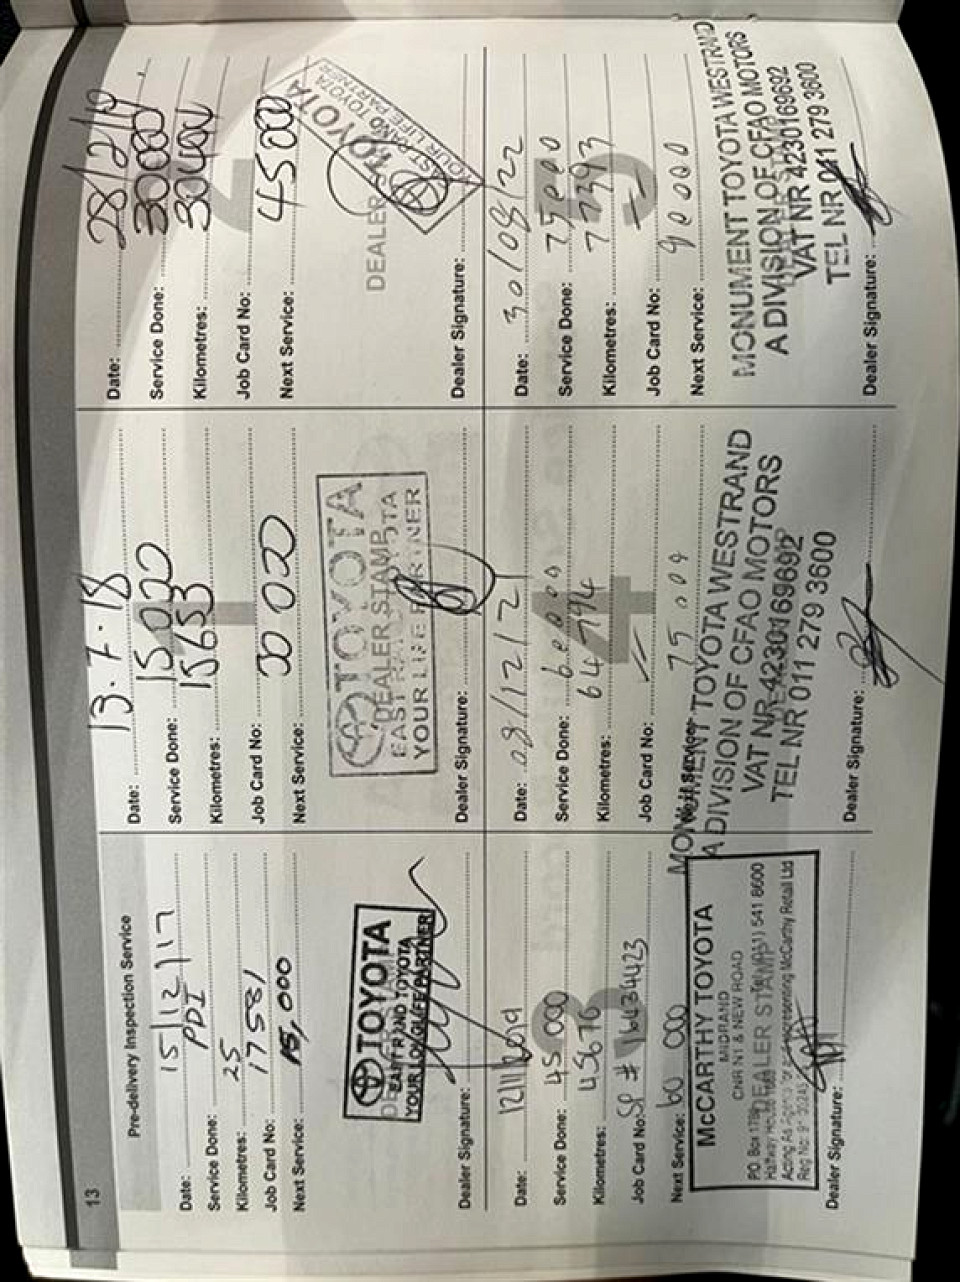 13
Pre-delivery Inspection Service
Date: 15/12/17
Service Done: PDI
Kilometres: 25
Job Card No: 17581
Next Service: 15,000
TOYOTA
EAST RAND TOYOTA
YOUR LIFE PARTNER
Dealer Signature:
1
Date: 13.7.18
Service Done: 15000
Kilometres: 15653
Job Card No:
Next Service: 30 000
TOYOTA
DEALER STAMP
EAST RAND TOYOTA
YOUR LIFE PARTNER
Dealer Signature:
2
Date: 28/12/18
Service Done: 30000
Kilometres:
Job Card No:
Next Service: 45000
DEALER
TOYOTA
EAST RAND TOYOTA
YOUR LIFE PARTNER
Dealer Signature:
3
Date: 12/11/2019
Service Done: 45 000
Kilometres: 45676
Job Card No: SP # 16434423
Next Service: 60 000
McCARTHY TOYOTA
MIDRAND
CNR N1 & NEW ROAD
DEALER STAMP
541 8600
representing McCarthy Retail Ltd
Dealer Signature:
4
Date: 08/12/12
Service Done: 60000
Kilometres: 64794
Job Card No: //
Next Service: 75000
MONUMENT TOYOTA WESTRAND
A DIVISION OF CFAO MOTORS
VAT NR 4230169692
TEL NR 011 279 3600
Dealer Signature:
5
Date: 30/08/22
Service Done: 75000
Kilometres: 77393
Job Card No: //
Next Service: 90000
MONUMENT TOYOTA WESTRAND
A DIVISION OF CFAO MOTORS
VAT NR 4230169692
TEL NR 011 279 3600
Dealer Signature: